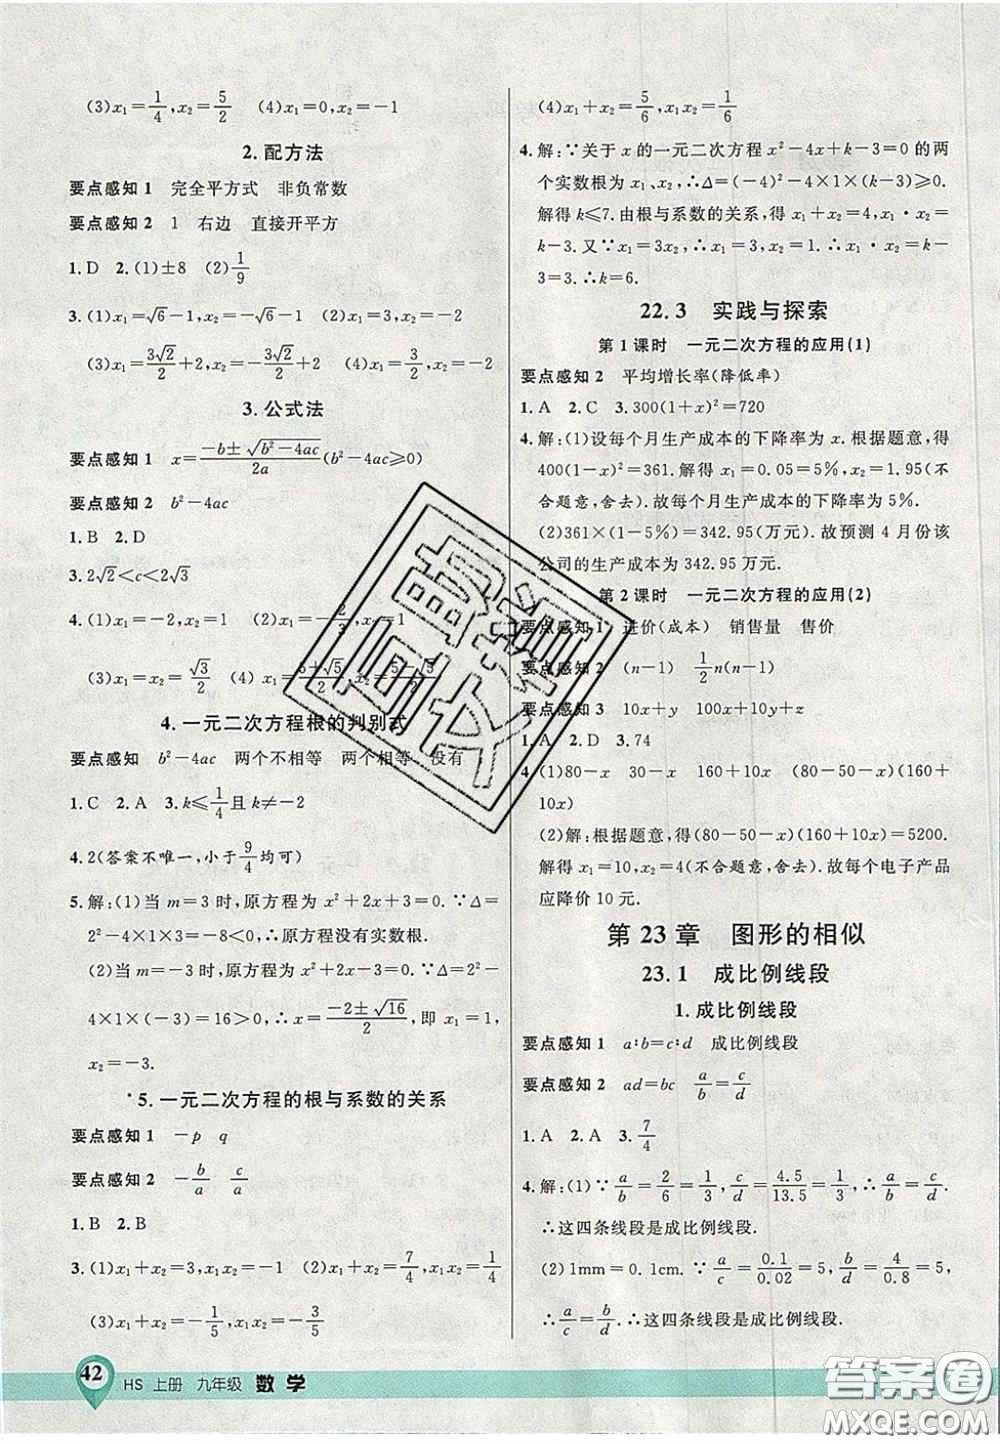 (3)x₁=1/4,x₂=5/2 (4)x₁=0,x₂=-1
2.配方法
要点感知 1 完全平方式 非负常数
要点感知 2 1 右边 直接开平方
1.D 2.(1)±8 (2)1/9
3.(1)x₁=√6-1,x₂=-√6-1 (2)x₁=x₂=-2
(3)x₁=3√2/2+2,x₂=-3√2/2+2
3.公式法
要点感知 1 x=(-b±√(b²-4ac))/2a(b²-4ac≥0)
要点感知 2 b²-4ac
1.B 2.D
3.2√2<c<2√3
4.(1)x₁=-2,x₂=1 (2)x₁=-2/3,x₂=1
(3)x₁=x₂=√3/2 (4) x₁=(5+√5)/2,x₂=(5-√5)/2
4.一元二次方程根的判别式
要点感知 b²-4ac 两个不相等 两个相等 没有
1.C 2.A 3.k≤1/4且k≠-2
4.2(答案不唯一,小于9/4均可)
5.解:(1)当 m=3时,原方程为 x²+2x+3=0.∵Δ=
2²-4×1×3=-8<0,∴原方程没有实数根.
(2)当 m=-3时,原方程为 x²+2x-3=0.∵Δ=2²-
4×1×(-3)=16>0,∴x=(-2±√16)/2,即 x₁=1,
x₂=-3.
5.一元二次方程的根与系数的关系
要点感知 1 -p q
要点感知 2 -b/a c/a
1.B 2.B
3.(1)x₁+x₂=3,x₁x₂=-1 (2)x₁+x₂=7/4,x₁x₂=1/4
(3)x₁+x₂=-1/5,x₁x₂=-3/5
(4)x₁+x₂=5/6,x₁x₂=1/6
4.解:∵关于 x 的一元二次方程 x²-4x+k-3=0的两
个实数根为 x₁、x₂,∴Δ=(-4)²-4×1×(k-3)≥0.
解得 k≤7.由根与系数的关系,得 x₁+x₂=4,x₁·x₂=
k-3.又∵x₁=3x₂,∴x₁=3,x₂=1.∴x₁·x₂=3=
k-3.∴k=6.
22.3 实践与探索
第 1 课时 一元二次方程的应用(1)
要点感知 2 平均增长率(降低率)
1.A 2.C 3.300(1+x)²=720
4.解:(1)设每个月生产成本的下降率为 x.根据题意,得
400(1-x)²=361.解得 x₁=0.05=5%,x₂=1.95(不
合题意,舍去).故每个月生产成本的下降率为5%.
(2)361×(1-5%)=342.95(万元).故预测 4 月份该
公司的生产成本为 342.95 万元.
第 2 课时 一元二次方程的应用(2)
要点感知 1 进价(成本) 销售量 售价
要点感知 2 (n-1) 1/2n(n-1)
要点感知 3 10x+y 100x+10y+z
1.A 2.D 3.74
4.(1)80-x 30-x 160+10x (80-50-x)(160+
10x)
(2)解:根据题意,得(80-50-x)(160+10x)=5200.
解得 x₁=10,x₂=4(不合题意,舍去).故每个电子产品
应降价 10 元.
第 23 章 图形的相似
23.1 成比例线段
1.成比例线段
要点感知 1 a∶b=c∶d 成比例线段
要点感知 2 ad=bc a/b=c/d
1.A 2.A 3.7/4
4.解:(1)∵a/b=2/6=1/3,c/d=4.5/13.5=1/3,∴a/b=c/d.
∴这四条线段是成比例线段.
(2)1mm=0.1cm.∵a/c=0.1/0.02=5,b/d=4/0.8=5,
∴a/c=b/d.∴这四条线段是成比例线段.
42 HS 上册 九年级 数学
答案圈
MXQE.COM